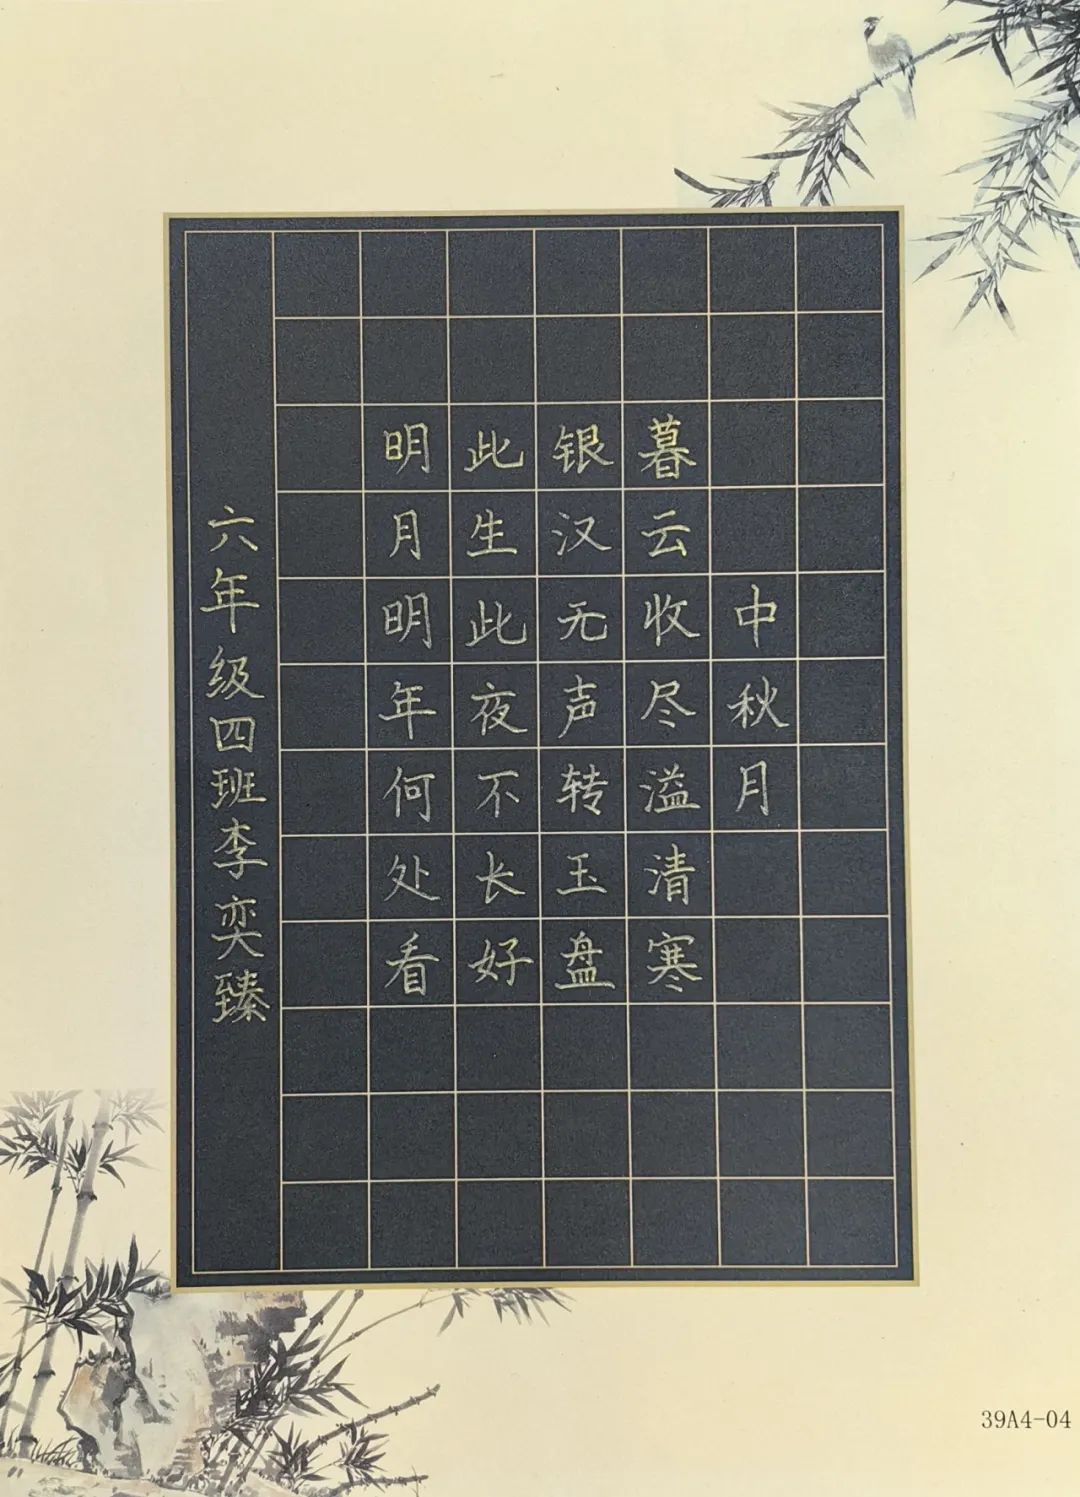 中秋月
暮云收尽溢清寒
银汉无声转玉盘
此生此夜不长好
明月明年何处看
六年级四班李奕臻
39A4-04